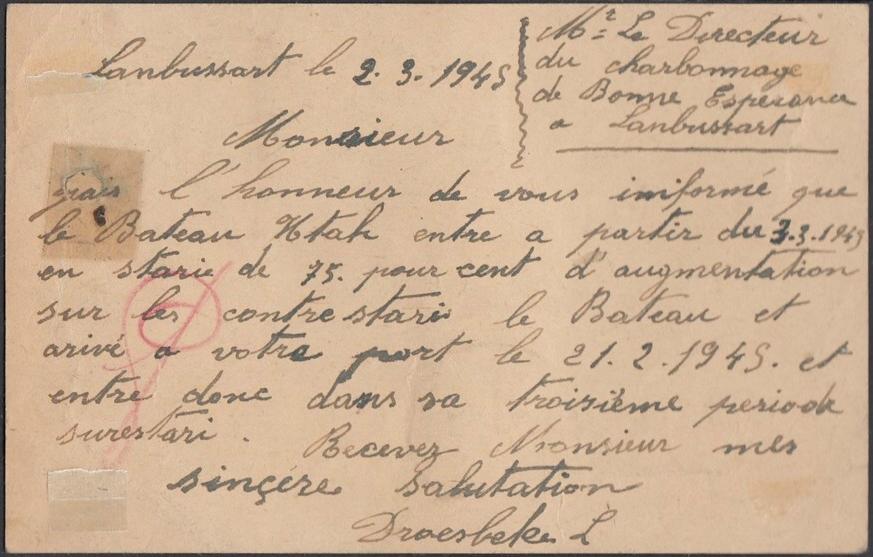 Lanbussart le 2.3.1945
Mr Le Directeur
du charbonnage
de Bonne Esperance
a Lanbussart
Monsieur
jiais l'honneur de vous imiformé que
le Bateau Utah entre a partir du 3.3.1945
en starie de 75. pour cent d'augmentation
sur les contrestari le Bateau et
arivé a votre port le 21.2.1945. et
entre donc dans sa troisième periode
surestari.
Recevez Monsieur mes
sinçére salutation
Droesbeke L